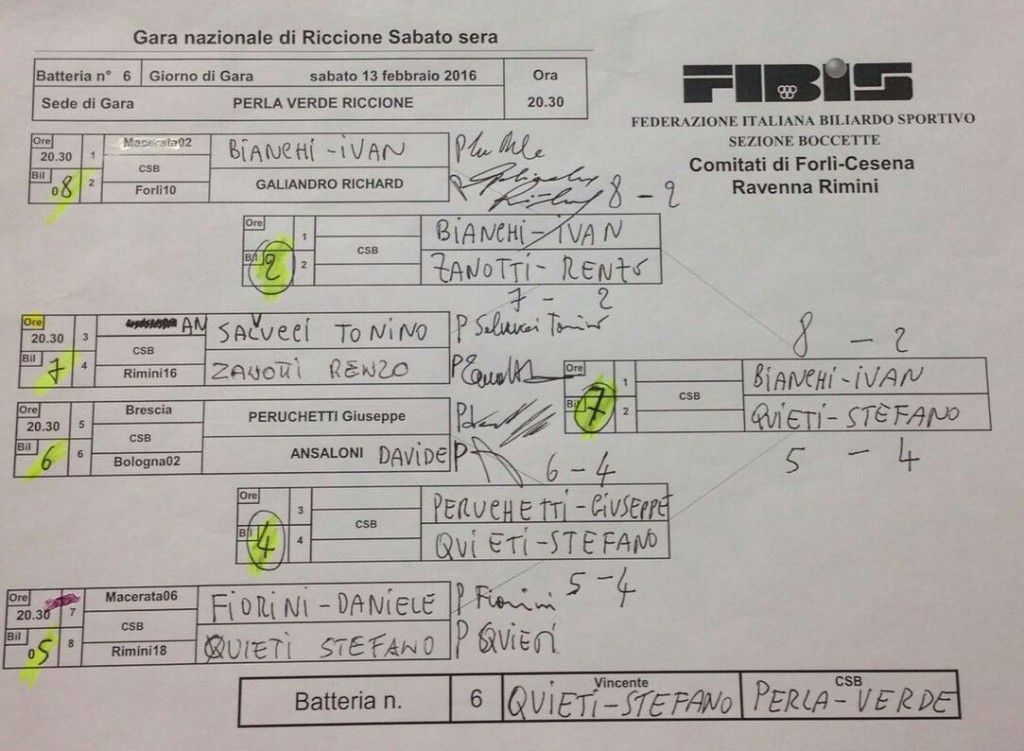 Gara nazionale di Riccione Sabato sera
Batteria n° 6 Giorno di Gara sabato 13 febbraio 2016 Ora
Sede di Gara PERLA VERDE RICCIONE 20.30
FIBIS
FEDERAZIONE ITALIANA BILIARDO SPORTIVO
SEZIONE BOCCETTE
Comitati di Forlì-Cesena
Ravenna Rimini
Ore 20.30 1 Macerata02 BIANCHI-IVAN P
CSB
Bil 08 2 Forlì10 GALIANDRO RICHARD P Galiandro Richard
8 - 2
Ore 1 BIANCHI-IVAN
CSB
Bil 2 2 ZANOTTI-RENZO
7 - 2
Ore 20.30 3 AN SALVUCCI TONINO P Salvucci Tonino
CSB
Bil 7 4 Rimini16 ZANOTTI RENZO P
8 - 2
Ore 1 BIANCHI-IVAN
CSB
Bil 7 2 QUIETI-STEFANO
5 - 4
Ore 20.30 5 Brescia PERUCHETTI Giuseppe P
CSB
Bil 6 6 Bologna02 ANSALONI DAVIDE P
6 - 4
Ore 3 PERUCHETTI-GIUSEPPE
CSB
Bil 4 4 QUIETI-STEFANO
5 - 4
Ore 20.30 7 Macerata06 FIORINI-DANIELE P Fiorini
CSB
Bil 05 8 Rimini18 QUIETI STEFANO P QUIETI
Batteria n. 6 Vincente QUIETI-STEFANO CSB PERLA-VERDE